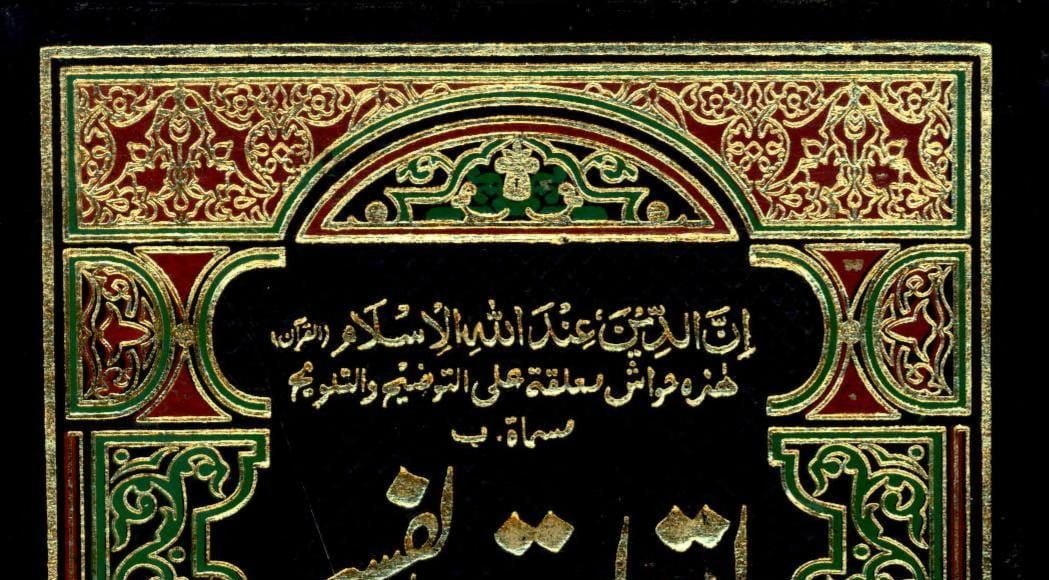 إِنَّ الدِّيْنَ عِنْدَ اللّٰهِ الْاِسْلَام (القرآن)
هٰذه حواش معلقة على التوضيح والتلويح
مسماة ب